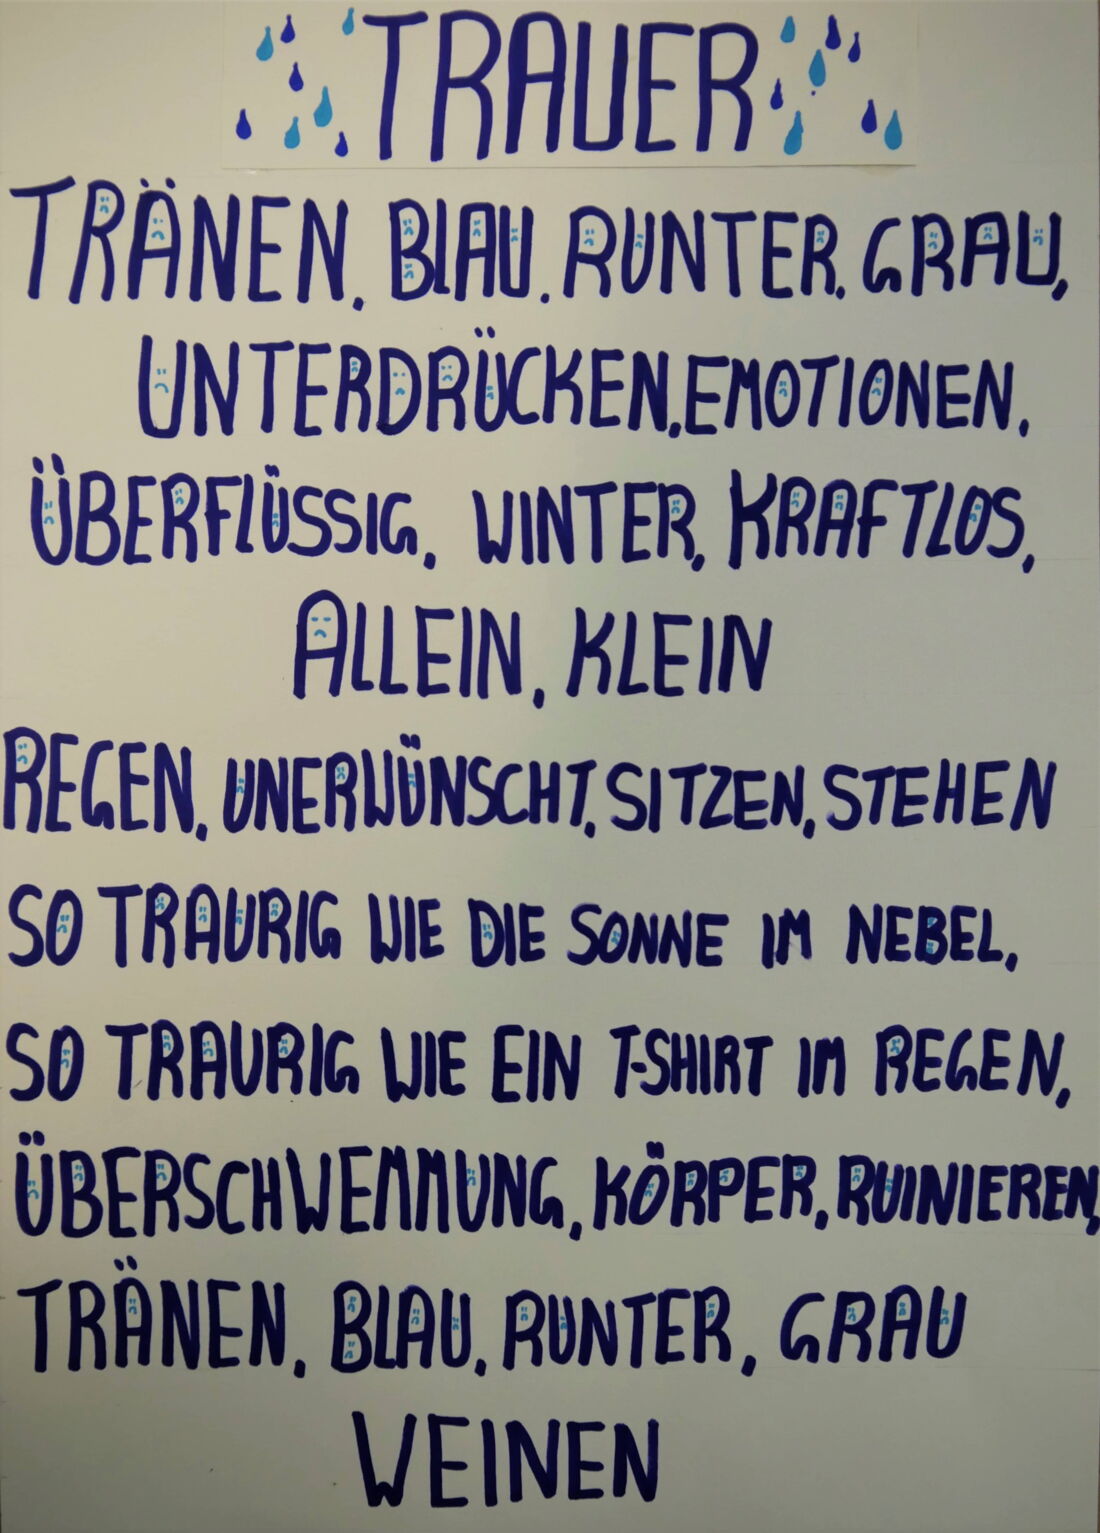 TRAUER
TRÄNEN, BLAU, RUNTER, GRAU,
UNTERDRÜCKEN, EMOTIONEN,
ÜBERFLÜSSIG, WINTER, KRAFTLOS,
ALLEIN, KLEIN
REGEN, UNERWÜNSCHT, SITZEN, STEHEN
SO TRAURIG WIE DIE SONNE IM NEBEL,
SO TRAURIG WIE EIN T-SHIRT IM REGEN,
ÜBERSCHWEMMUNG, KÖRPER, RUINIEREN,
TRÄNEN, BLAU, RUNTER, GRAU
WEINEN